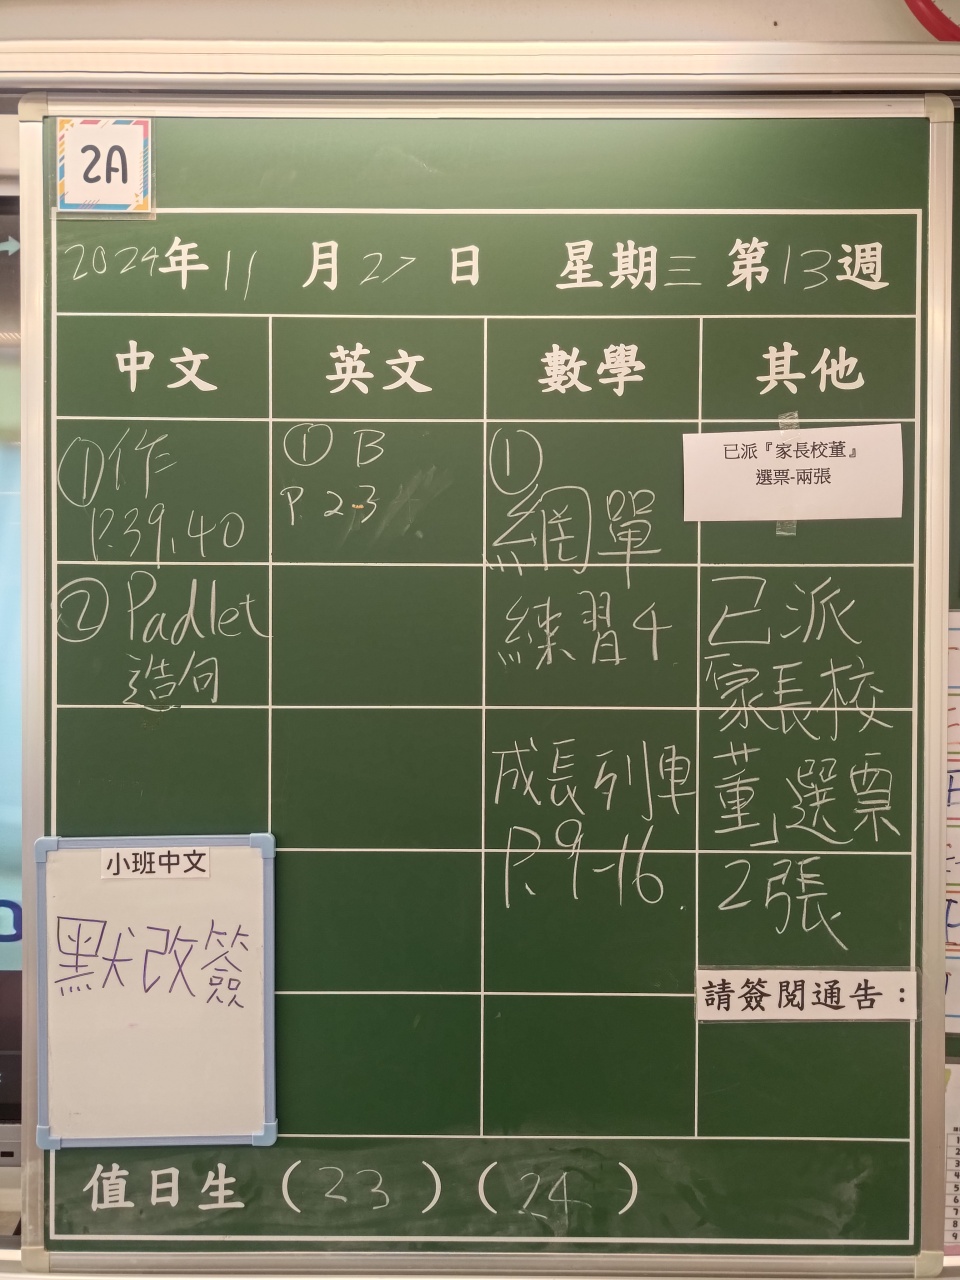 2A
2024年11月27日 星期三 第13週
中文 英文 數學 其他
①作
P.39,40
②Padlet
造句
①B
P.23
①
網單
練習4
成長列車
P.9-16.
已派『家長校董』
選票-兩張
已派
「家長校
董」選票
2張
請簽閱通告：
小班中文
默改簽
值日生（23）（24）